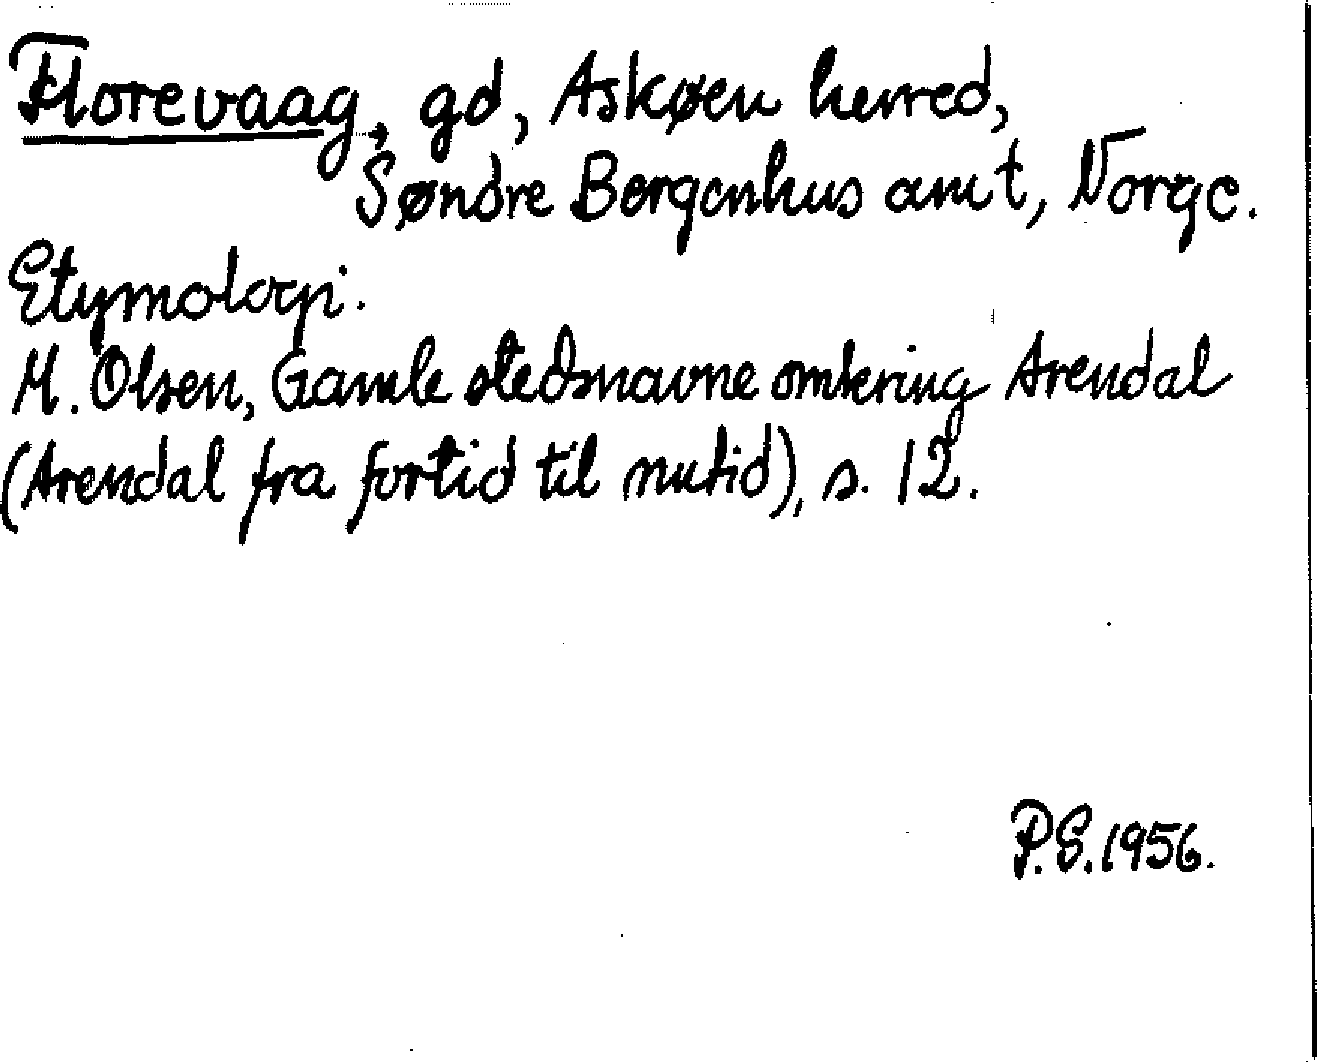 Florevaag, gd, Askøen herred,
Søndre Bergenhus amt, Norge.
Etymologi.
M. Olsen, Gamle stedsnavne omkring Arendal
(Arendal fra fortid til nutid), s. 12.
P.S. 1956.